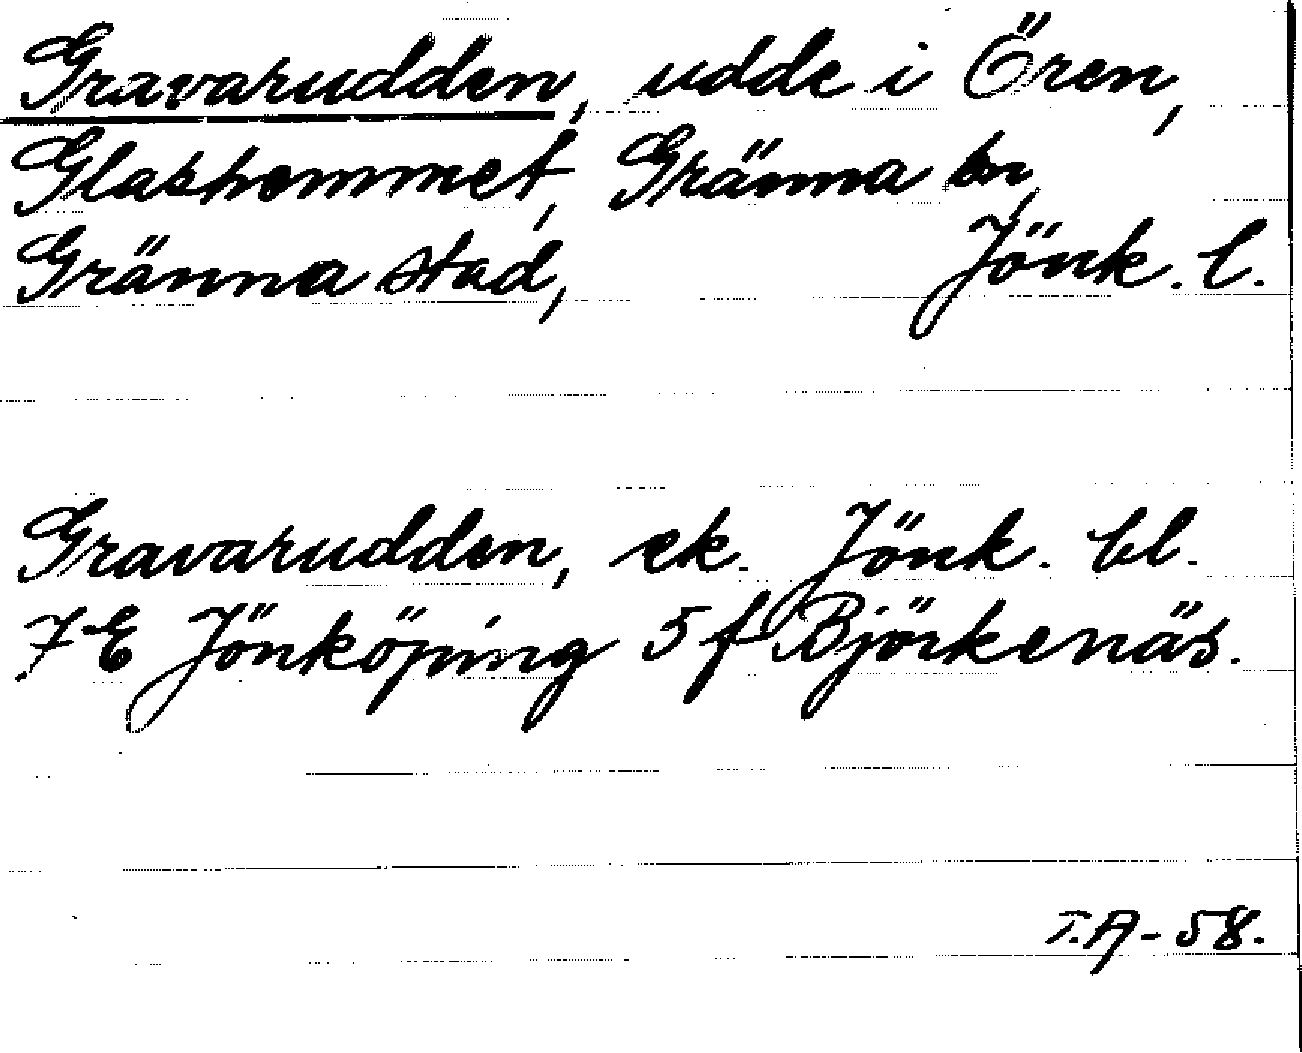 Gravarudden, udde i Ören,
Glashemmet, Gränna sn,
Gränna stad, Jönk. l.
Gravarudden, ek. Jönk. bl.
7E Jönköping 5f Björkenäs.
T.A-58.